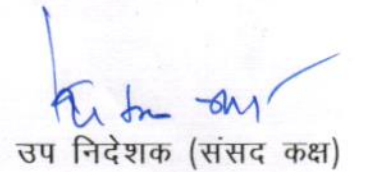 उप निदेशक (संसद कक्ष)